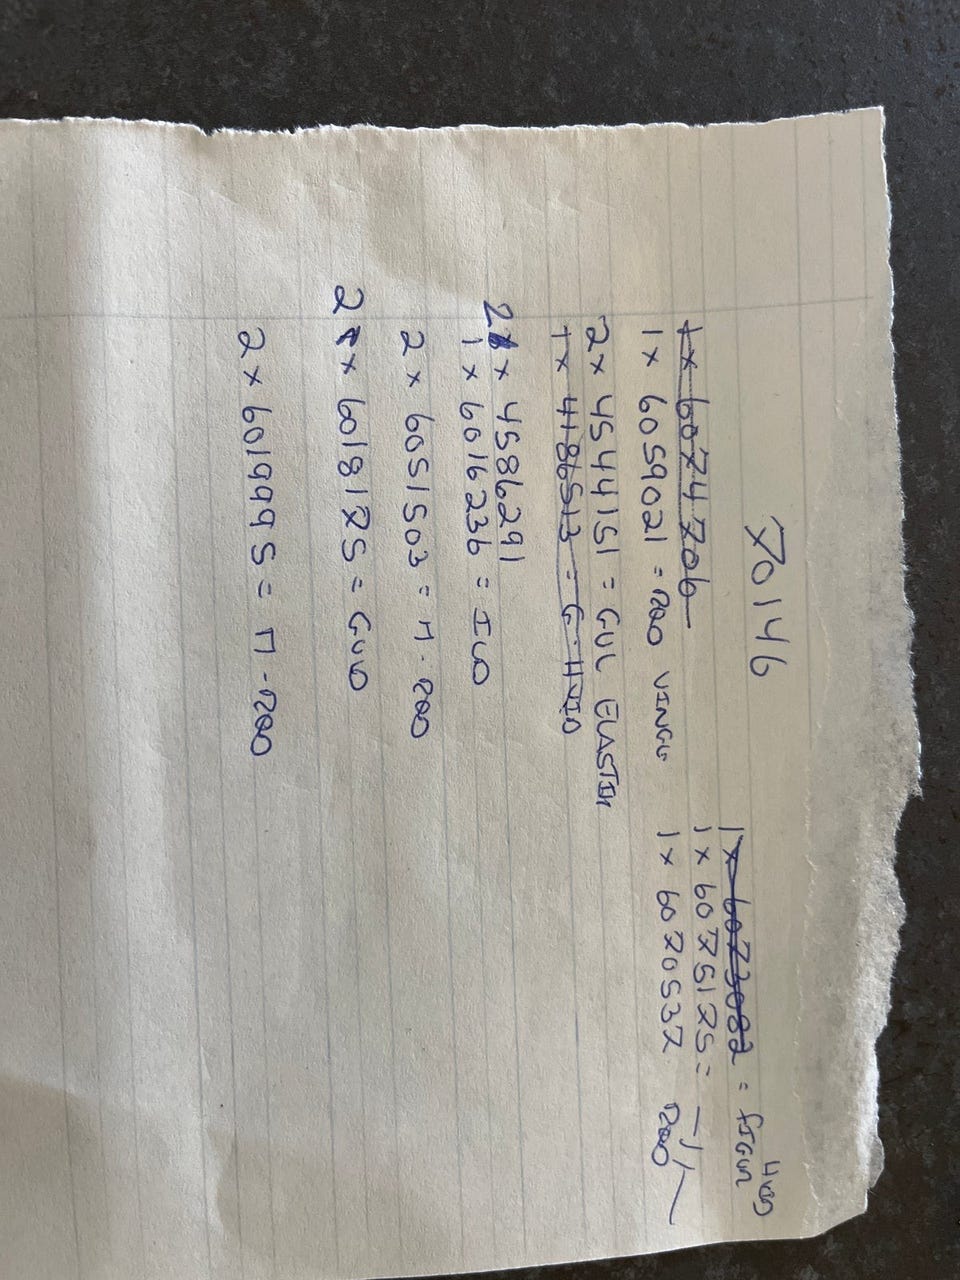 70146
1x 6074706
1x 6073082 = FIGUR HVD
1x 6075175 = -11-
1x 6059021 = RØD VINGE
1x 6070537 RØD
2x 4544151 = GUL ELASTIK
1x 4186513 = G. HVID
2x 4586291
1x 6016236 = ILD
2x 6051503 = M.RØD
2x 6018175 = GULD
2x 6019995 = M.RØD